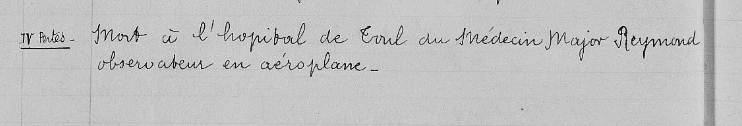 IV Pertes - Mort à l'hopital de Toul du Médecin Major Reymond
observateur en aéroplane -